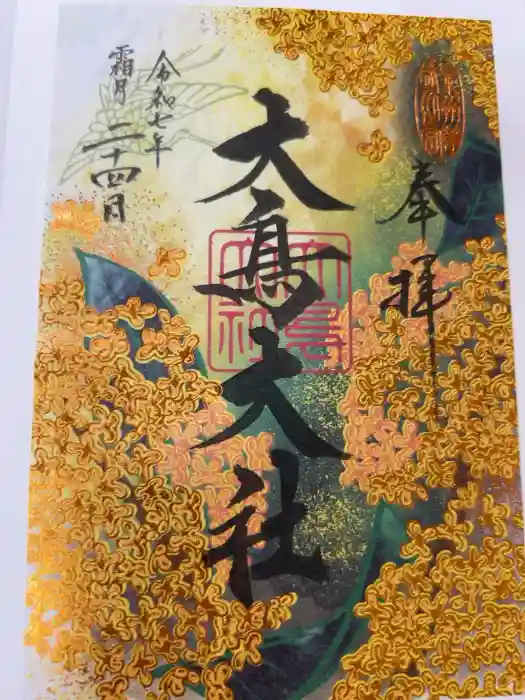 奉拝
大鳥大社
大鳥
大社
令和七年
霜月
二十四日